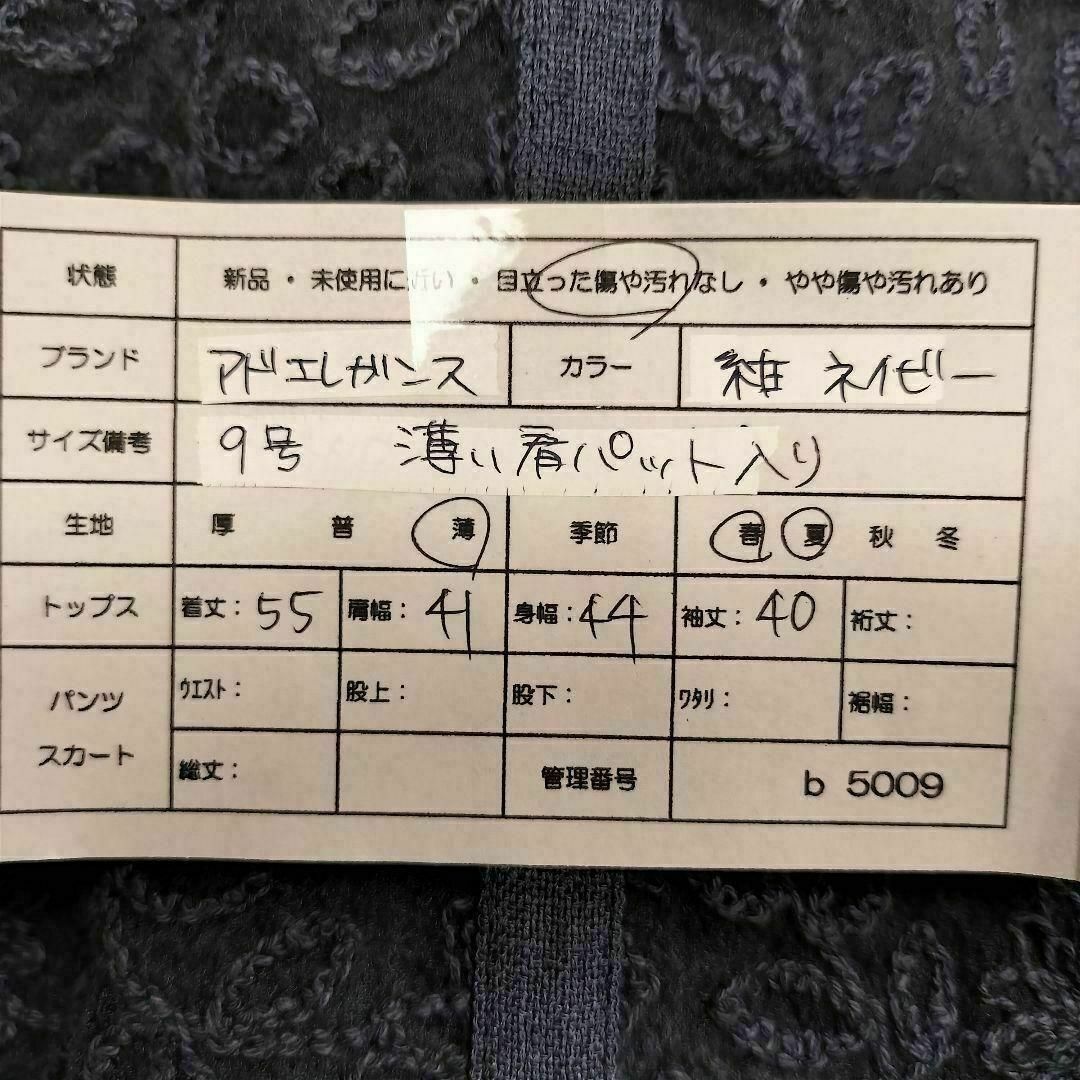 状態 新品・未使用に近い・目立った傷や汚れなし・やや傷や汚れあり
ブランド アドエレガンス カラー 紺 ネイビー
サイズ備考 9号 薄い肩パット入り
生地 厚 普 薄 季節 春 夏 秋 冬
トップス 着丈：55 肩幅：41 身幅：44 袖丈：40 裄丈：
パンツ スカート ウエスト： 股上： 股下： ワタリ： 裾幅：
総丈： 管理番号 b 5009